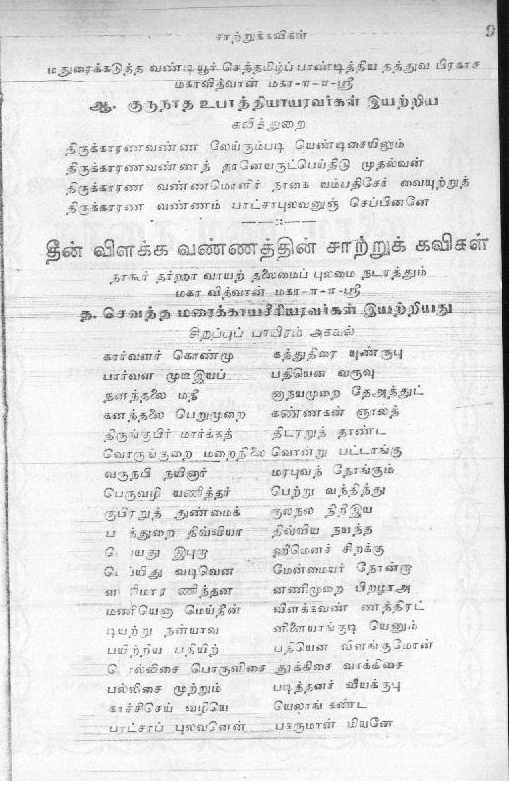 சாற்றுக்கவிகள்
9
மதுரைக்கடுத்த வண்டியூர் செந்தமிழ்ப் பாண்டித்திய தத்துவ பிரகாச
மகாவித்வான் மகா-ா-ா-ஸ்ரீ
ஆ. குருநாத உபாத்தியாயரவர்கள் இயற்றிய
கலித்துறை
திருக்காரணவண்ண லேய்ரும்படி யெண்டிசையிலும்
திருக்காரணவண்ணத் தானேயருட்பெய்திடு முதல்வன்
திருக்காரண வண்ணமொளிர் நாகை யம்பதிசேர் வையுற்றுத்
திருக்காரண வண்ணம் பாட்சாபுலவனுஞ் செப்பினனே
தீன் விளக்க வண்ணத்தின் சாற்றுக் கவிகள்
நாகூர் தர்ஹா வாயற் தலைமைப் புலமை நடாத்தும்
மகா வித்வான் மகா-ா-ா-ஸ்ரீ
த. செவத்த மரைக்காயசீரியரவர்கள் இயற்றியது
சிறப்புப் பாயிரம் அகவல்
கார்வளர் கொண்மூ கத்துதிரை யுண்குபு
பார்வன முடீஇயப் பதியென வருவு
நனந்தலை மதீ னூநயமுறை தேஅத்துட்
கனந்தலை பெறுமுறை கண்ணகன் ஞாலத்
திருங்குபிர் மார்க்கத் திடரறுத் தாண்ட
வொருங்குறை மறைநிலை வொன்று பட்டாங்கு
வருநபி நயினார் மரபுவந் தோங்கும்
பெருவழி யணித்தர் பெற்று வந்தித்து
குபிரறுத் துண்மைக் குலநல நிறீஇய
திவ்விய நயந்த
ஹீமெனச் சிறக்கு
வடிவென மேன்மையர் நோன்மூ
ணிந்தன னணிமுறை பிறழாஅ
மணியெனு மெய்தீன் விளக்கவண் ணத்திரட்
டியற்று நன்யாவ னிளையாங்குடி யெனும்
பயிற்றிய பதியிற் பதியென வளங்குமோன்
பொருளிசை தூக்கிசை வாக்கிசை
பல்லிசை முற்றும் படித்தனர் வியக்குபு
காச்சிசெய் வழியே யெலாங் கண்ட
பாட்சாப் புலவனென் பகருமான் மியனே